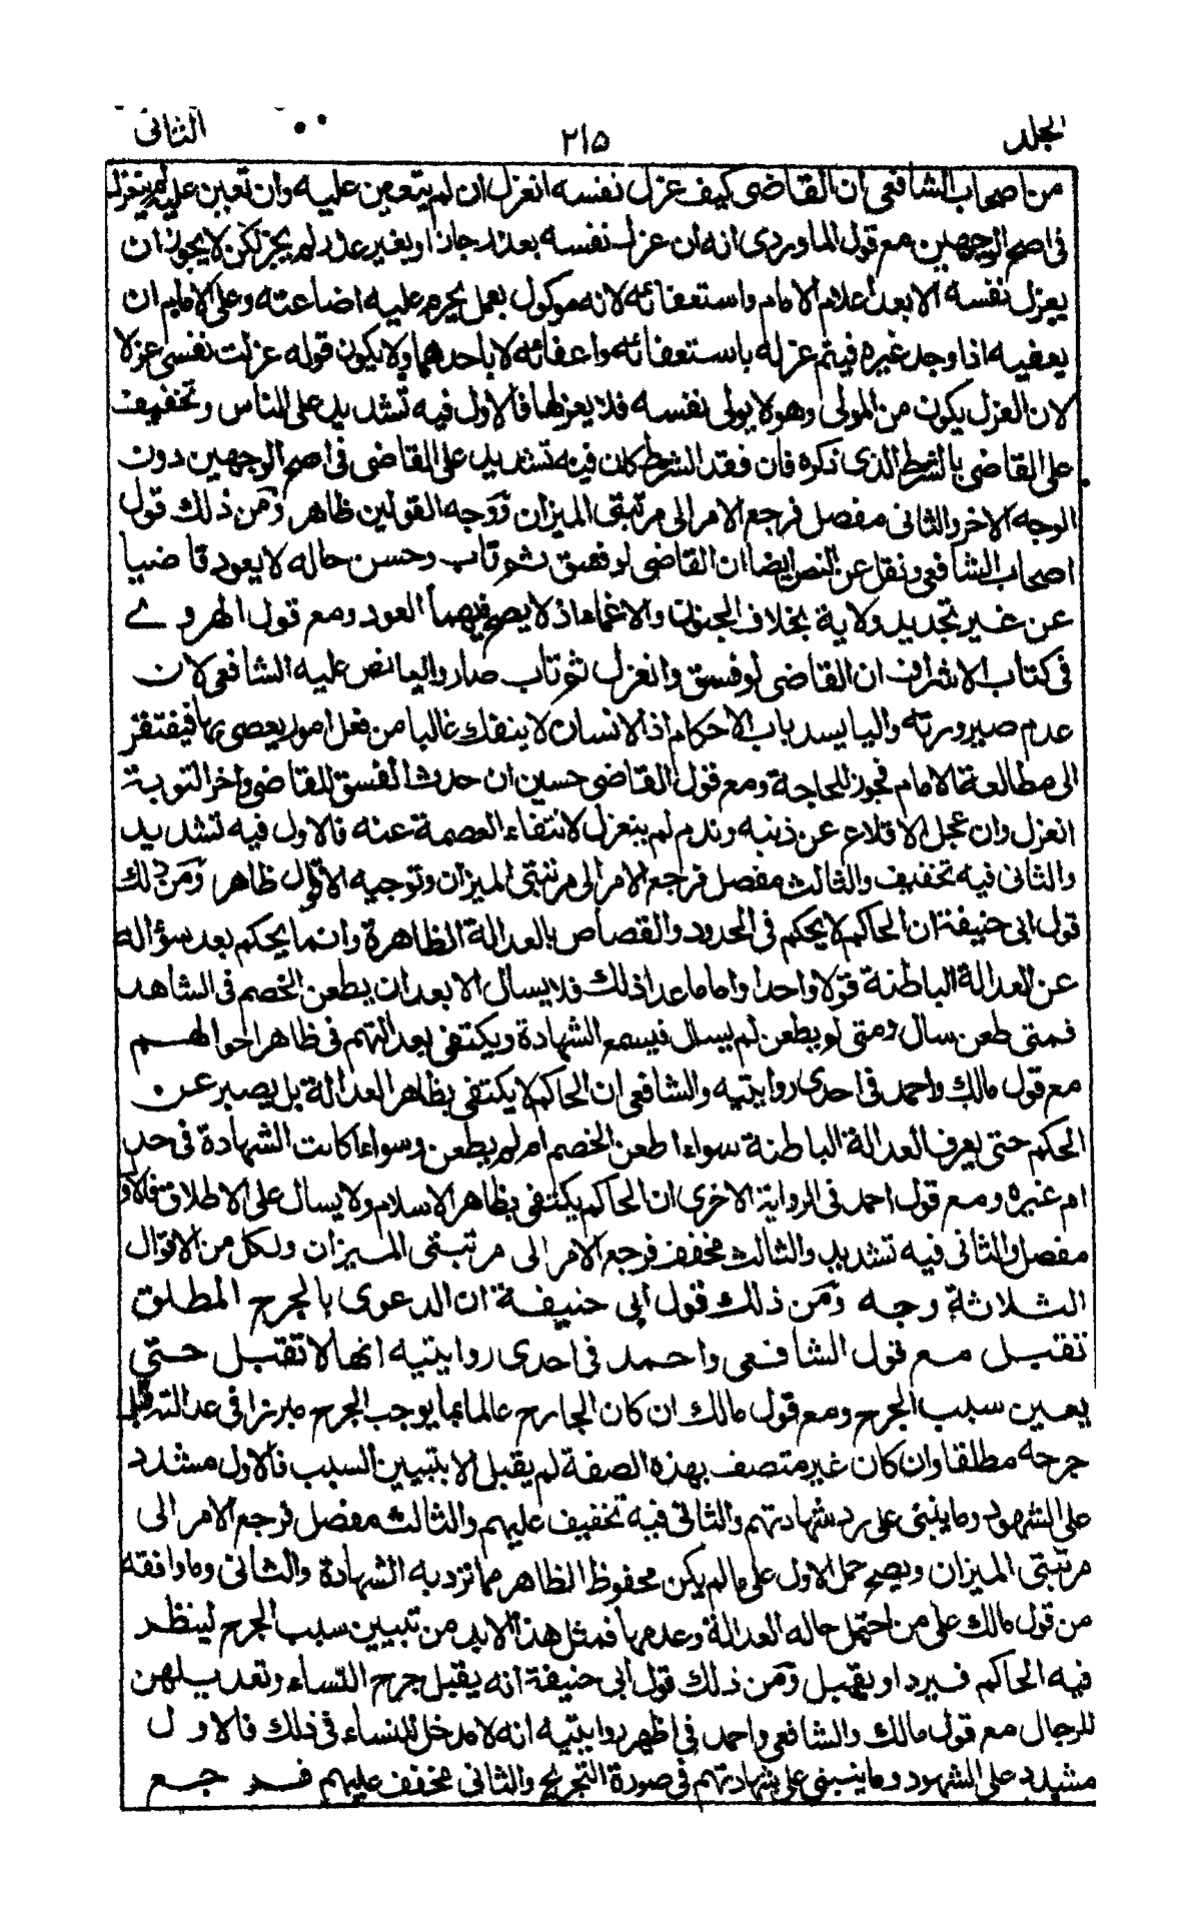 الجلد ٢١٥ الثانى
من اصحاب الشافعى ان القاضى كيف عزل نفسه انعزل ان لم يتعين عليه وان تعين عليه لم ينعزل
فى اصح الوجهين مع قول الماوردى انه ان عزل نفسه بعذر جاز او بغير عذر لم يجز لكن لا يجوز ان
يعزل نفسه الا بعد اعلام الامام واستعفائه لانه موكول بعمل يحرم عليه اضاعته وعلى الامام ان
يعفيه اذا وجد غيره فيتم عزله باستعفائه واعفائه لا باحدهما ولا يكون قوله عزلت نفسى عزلا
لان العزل يكون من المولى وهو لا يولى نفسه فلا يعزلها فالاول فيه تشديد على الناس وتخفيف
على القاضى بالشرط الذى ذكره فان فقد الشرط كان فيه تشديد على القاضى فى اصح الوجهين دون
الوجه الاخر والثانى مفصل فرجع الامر الى مرتبتى الميزان ووجه القولين ظاهر ومن ذلك قول
اصحاب الشافعى ونقل عن النص ايضا ان القاضى لو فسق ثم تاب وحسن حاله لا يعود قاضيا
عن غير تجديد ولاية بخلاف الجنون والاغماء اذ لا يصح فيهما العود ومع قول الهروے
فى كتاب الاشراف ان القاضى لو فسق وانعزل ثم تاب صار واليا نص عليه الشافعى لان
عدم صيرورته واليا يسد باب الاحكام اذ الانسان لا ينفك غالبا من فعل امور يعصى بها فيفتقر
الى مطالعة الامام فجوز للحاجة ومع قول القاضى حسين ان حدث الفسق للقاضى واخر التوبة
انعزل وان عجل الاقلاع عن ذنبه وندم لم ينعزل لانتفاء العصمة عنه فالاول فيه تشديد
والثانى فيه تخفيف والثالث مفصل فرجع الامر الى مرتبتى الميزان وتوجيه الاقوال ظاهر ومن ذلك
قول ابى حنيفة ان الحاكم لا يحكم فى الحدود والقصاص بالعدالة الظاهرة وانما يحكم بعد سؤاله
عن العدالة الباطنة قولا واحدا واما ما عدا ذلك فلا يسال الا بعد ان يطعن الخصم فى الشاهد
فمتى طعن سال ومتى لم يطعن لم يسال فيسمع الشهادة ويكتفى بعدالتهم فى ظاهر احوالهم
مع قول مالك واحمد فى احدى روايتيه والشافعى ان الحاكم لا يكتفى بظاهر العدالة بل يصبر عن
الحكم حتى يعرف العدالة الباطنة سواء اطعن الخصم ام لم يطعن وسواء اكانت الشهادة فى حد
ام غيره ومع قول احمد فى الرواية الاخرى ان الحاكم يكتفى بظاهر الاسلام ولا يسال على الاطلاق فالاو
مفصل والثانى فيه تشديد والثالث مخفف فرجع الامر الى مرتبتى الميزان ولكل من الاقوال
الثلاثة وجه ومن ذلك قول ابى حنيفة ان الدعوى بالجرح المطلق
تقبل مع قول الشافعى واحمد فى احدى روايتيه انها لا تقبل حتى
يعين سبب الجرح ومع قول مالك ان كان الجارح عالما بما يوجب الجرح مبرزا فى عدالته قبل
جرحه مطلقا وان كان غير متصف بهذه الصفة لم يقبل الا بتبيين السبب فالاول مشدد
على الشهود وما ينبنى على رد شهادتهم والثانى فيه تخفيف عليهم والثالث مفصل فرجع الامر الى
مرتبتى الميزان ويصح حمل الاول على ما لم يكن محفوظ الظاهر مما تزد به الشهادة والثانى وما وافقه
من قول مالك على من احتمل حاله العدالة وعدمها فمثل هذا لابد من تبيين سبب الجرح لينظر
فيه الحاكم فيرد او يقبل ومن ذلك قول ابى حنيفة انه يقبل جرح النساء وتعديلهن
للرجال مع قول مالك والشافعى واحمد فى اظهر روايتيه انه لا مدخل للنساء فى ذلك فالاول
مشدد على الشهود وما ينبنى على شهادتهم فى صورة التجريح والثانى مخفف عليهم فرجع